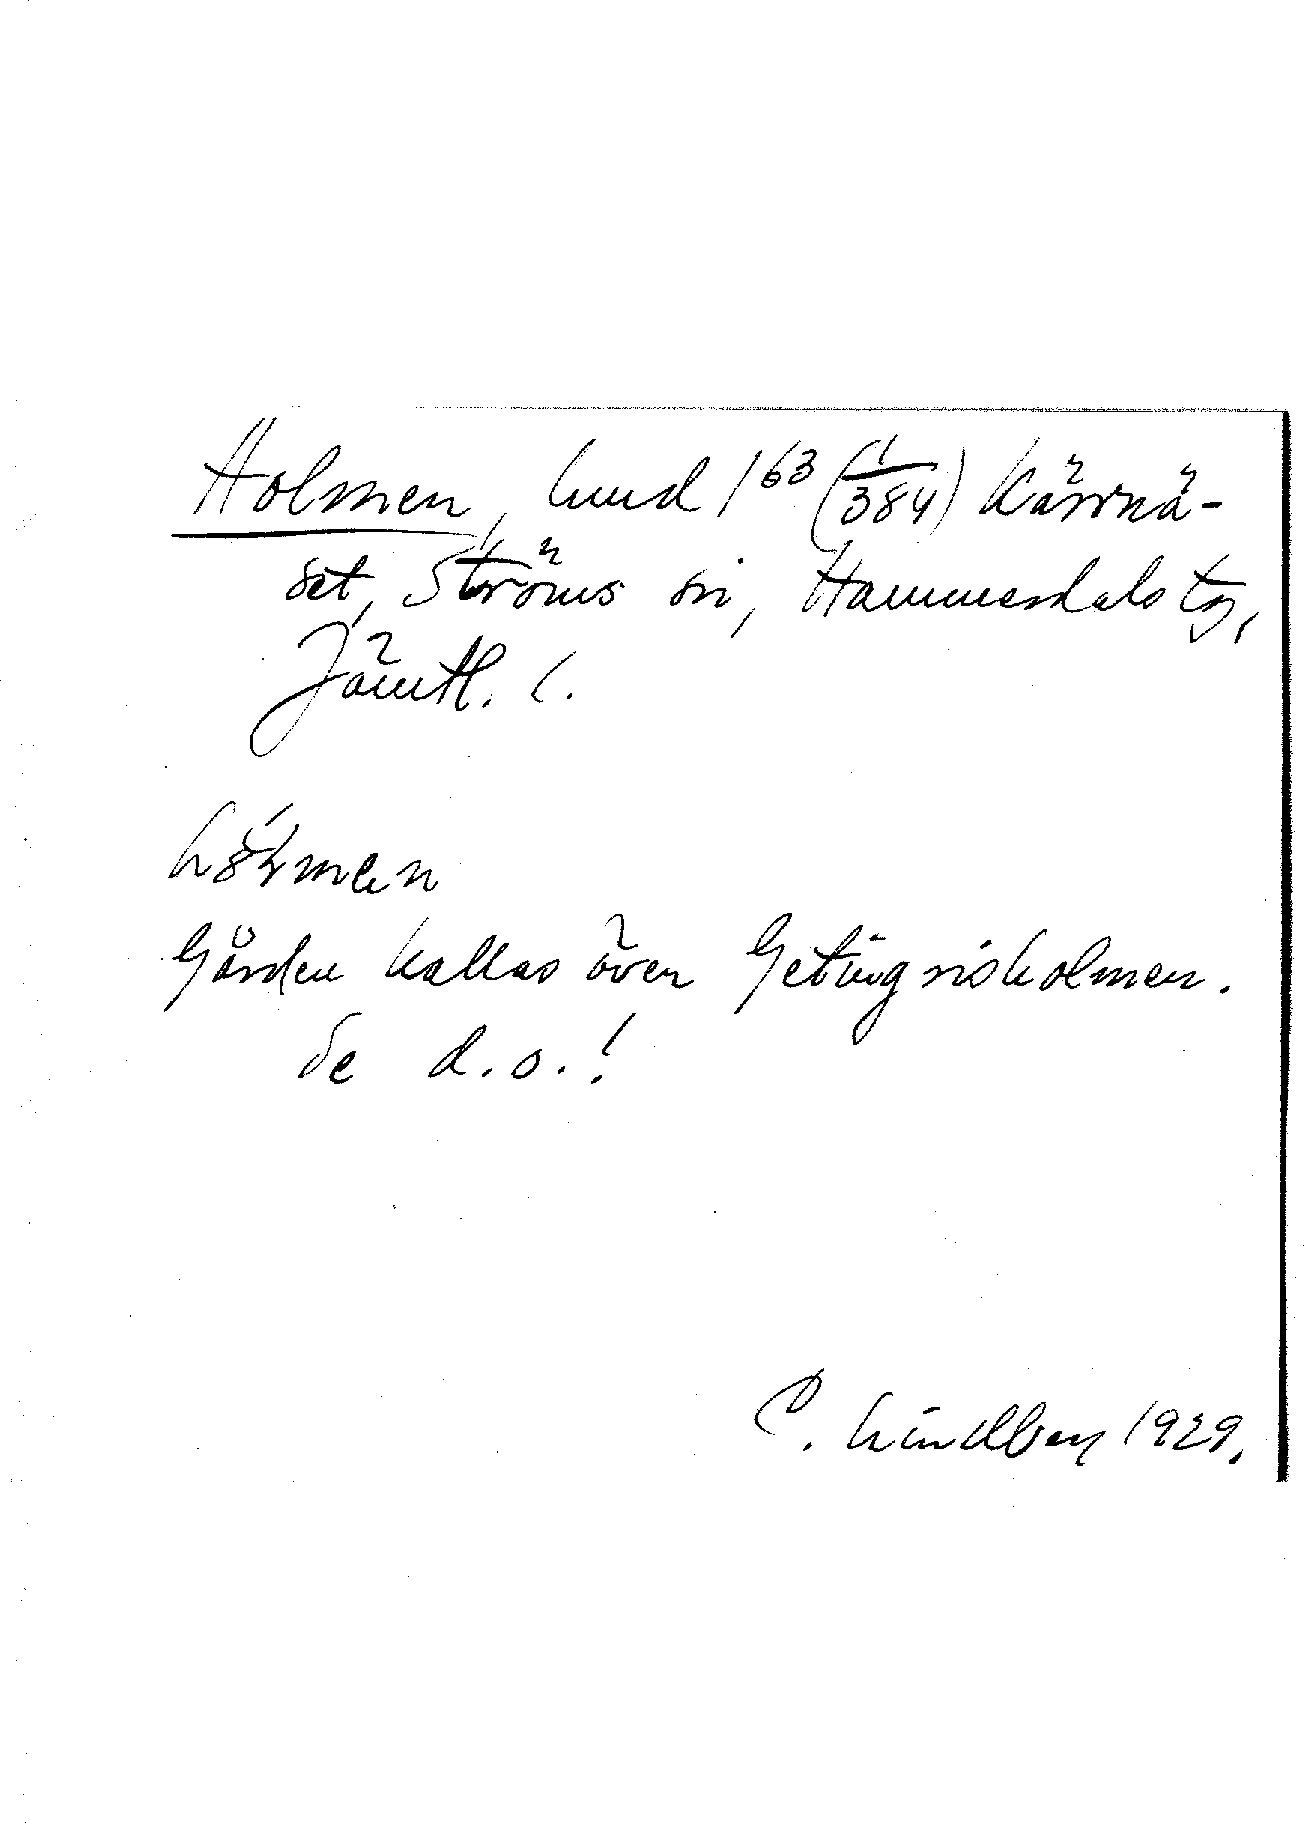 Holmen, hmd 1⁶³ (1/384) Kärrnä-
set, Ströms sn, Hammerdals tg,
Jämtl. l.
Gården kallas även Getingrisholmen.
Se d.o.!
C. Lindberg 1929.